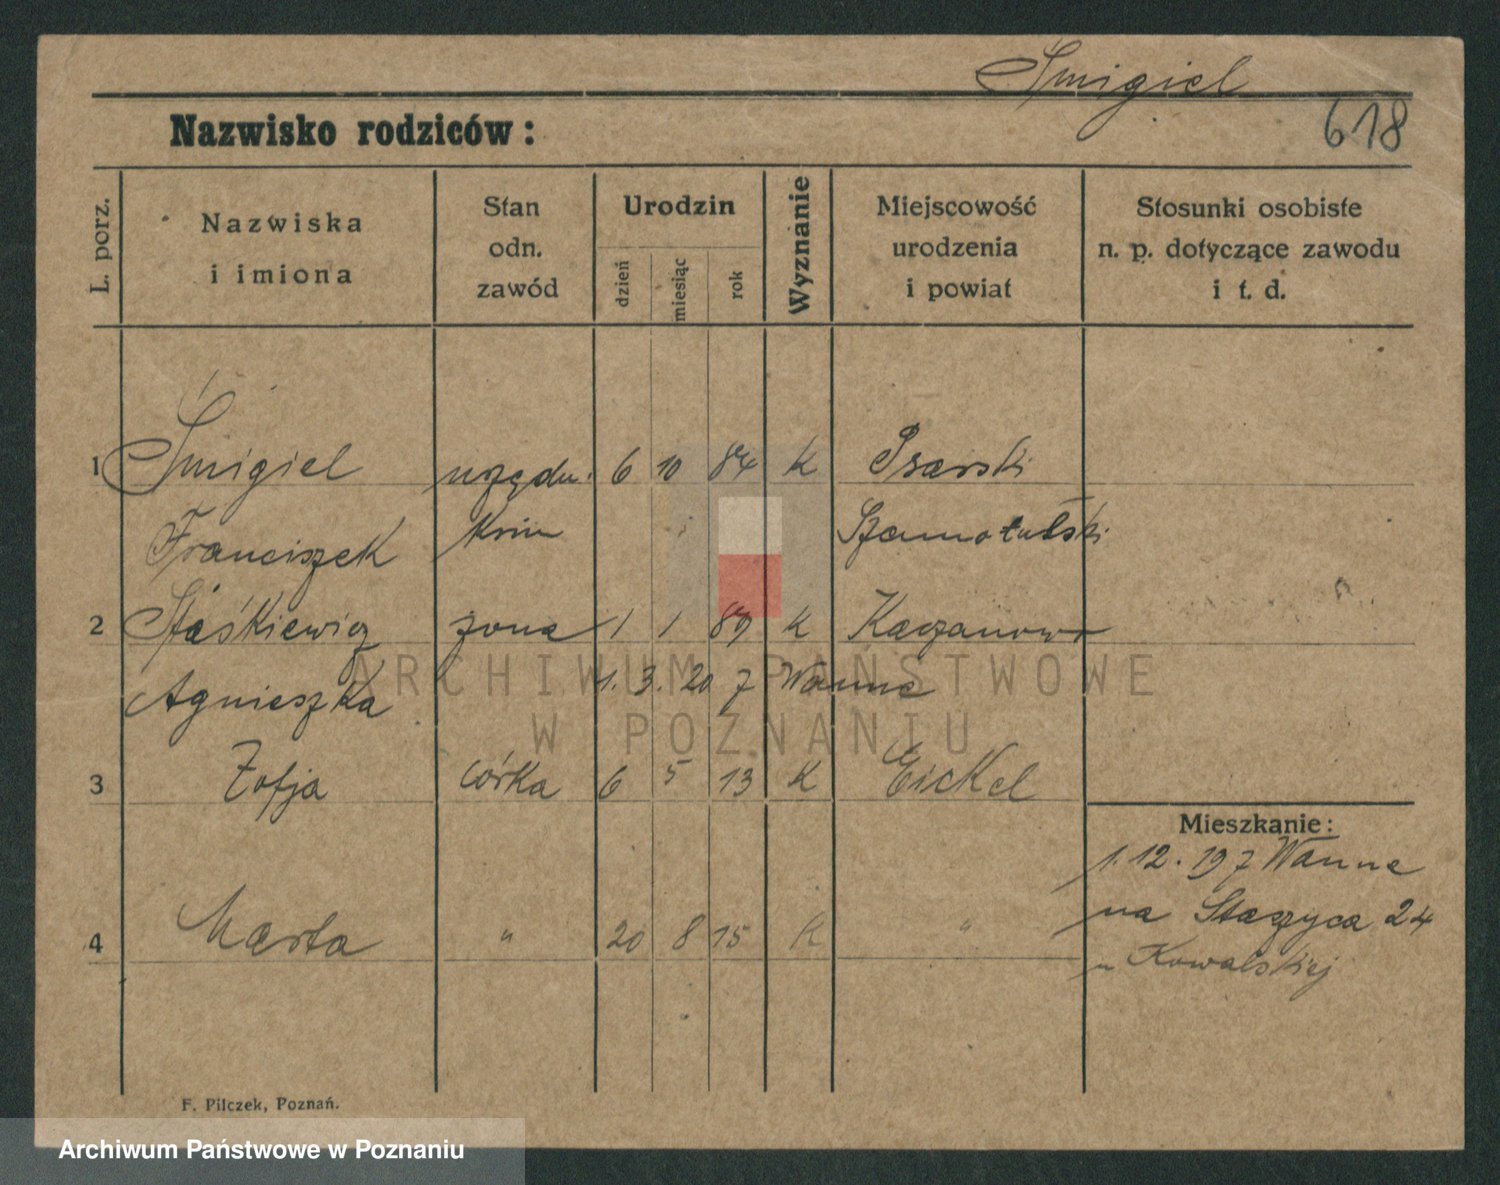 Śmigiel
618
Nazwisko rodziców:
L. porz.
Nazwiska
i imiona
Stan
odn.
zawód
Urodzin
dzień
miesiąc
rok
Wyznanie
Miejscowość
urodzenia
i powiat
Stosunki osobiste
n. p. dotyczące zawodu
i t. d.
1 Śmigiel urzędn. 6 10 84 K Psarski
Franciszek Szamotulski
2 Staśkiewicz żona 1 1 89 K Kaczanowo
Agnieszka 1. 3. 20 z Wanne
3 Zofja córka 6 5 13 K Eickel
4 Marta " 20 8 15 K "
Mieszkanie:
1. 12. 19 z Wanne
na Staszyca 24
u Kowalskiej
F. Pilczek, Poznań.
ARCHIWUM PAŃSTWOWE
W POZNANIU
Archiwum Państwowe w Poznaniu